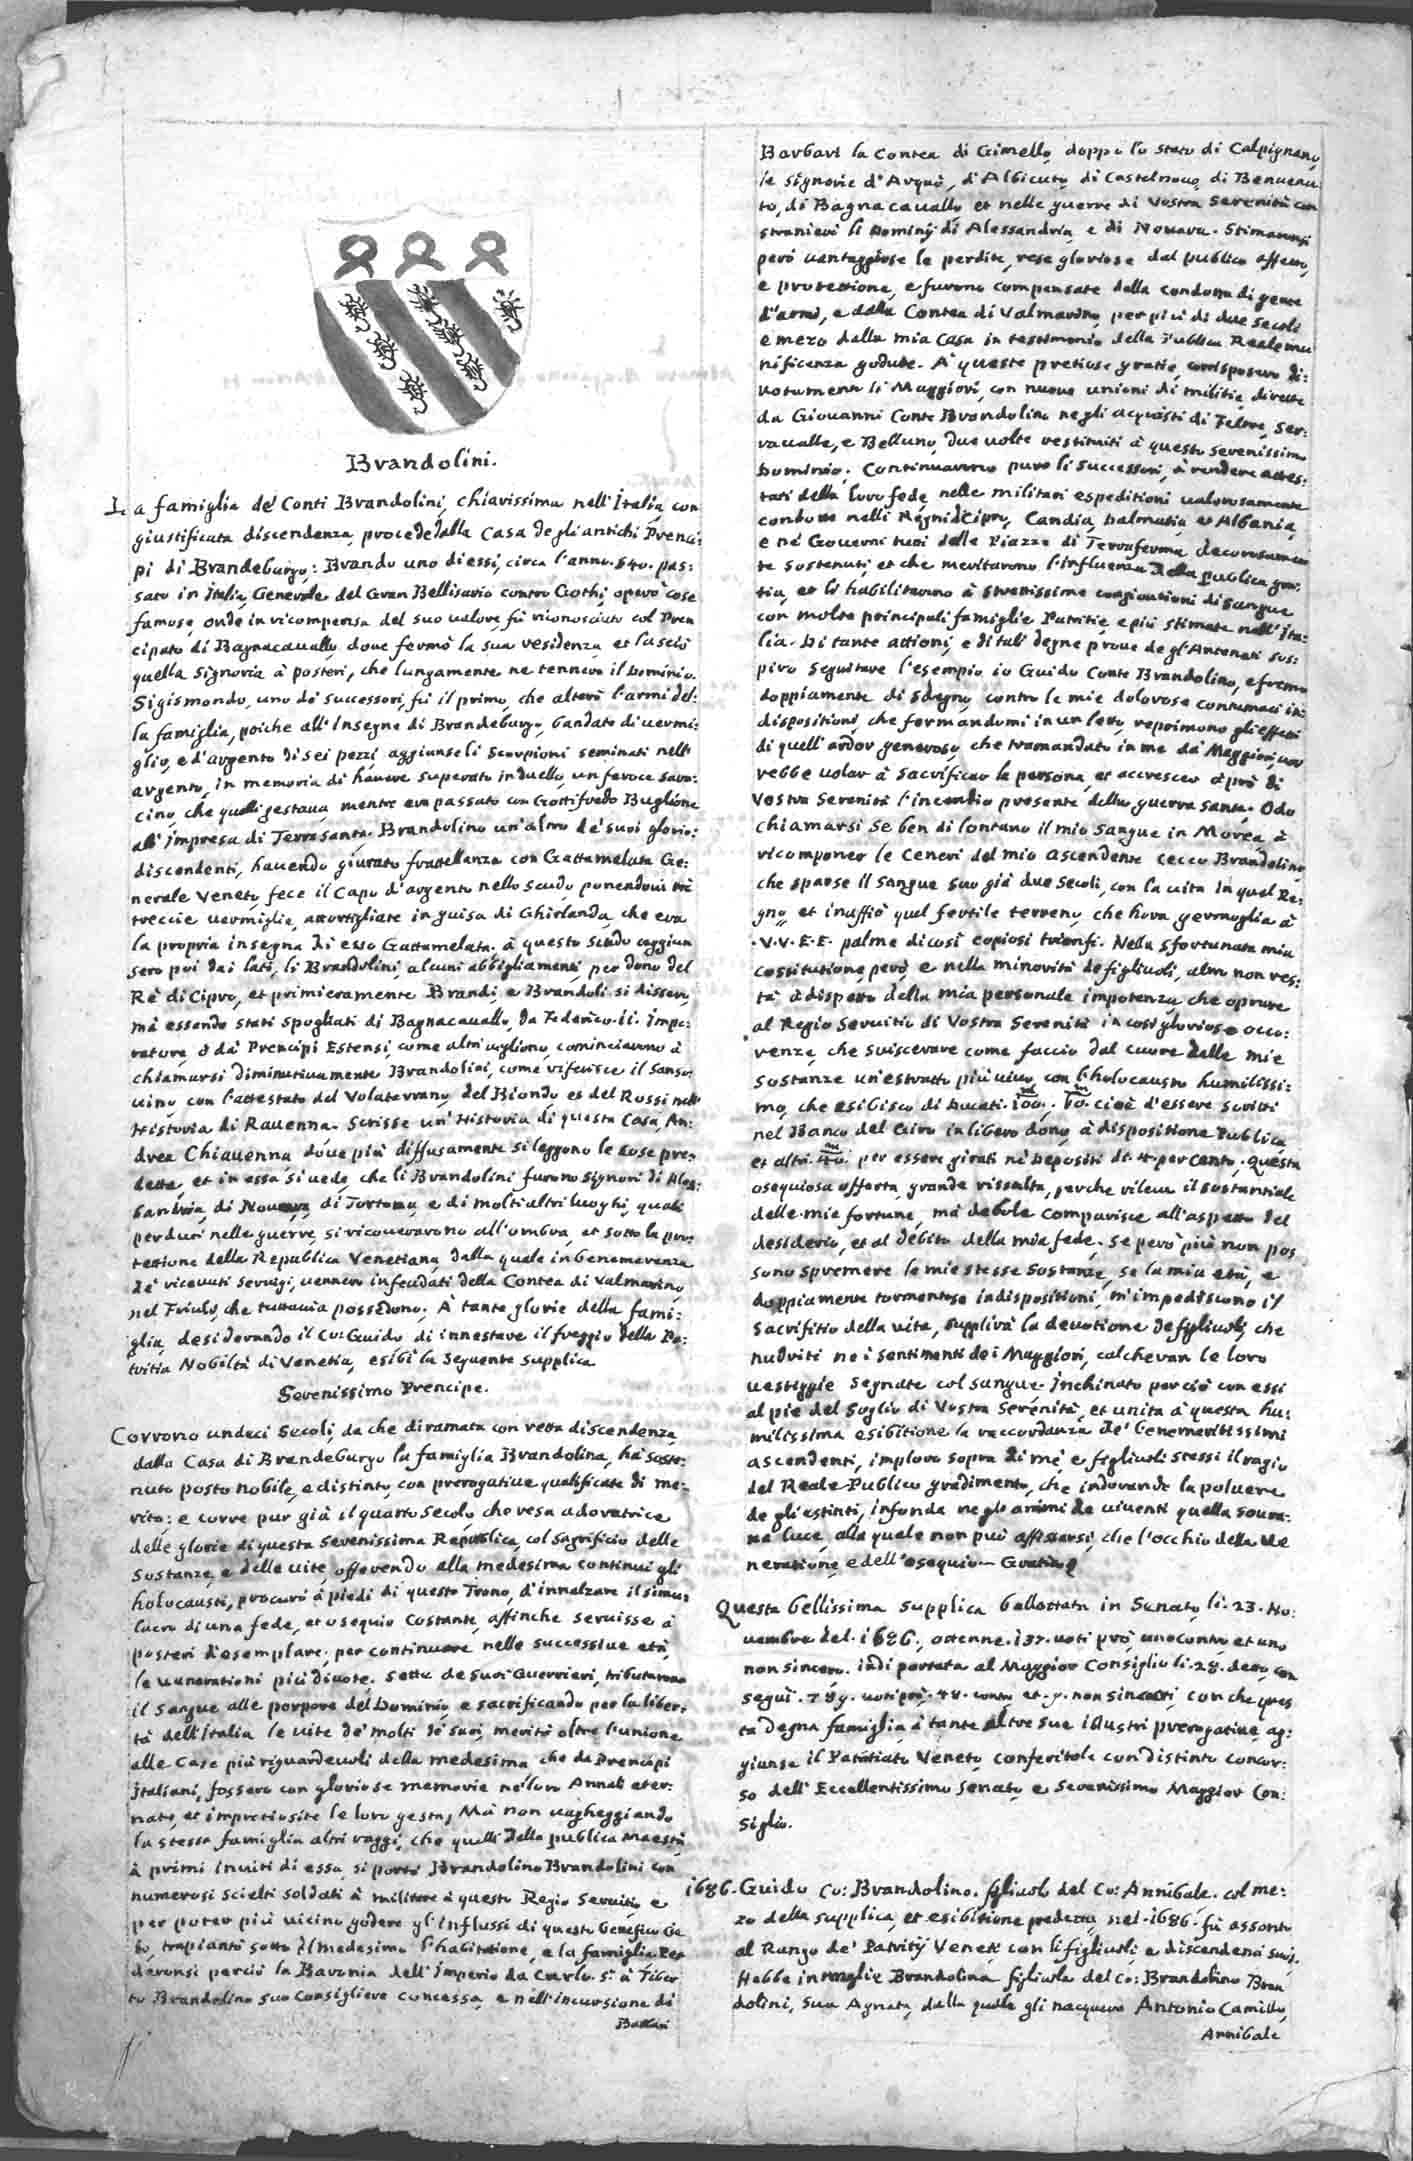 Brandolini.
La famiglia de' Conti Brandolini, chiarissima nell'Italia, con
giustificata discendenza, procede dalla Casa degli antichi Prenci:
pi di Brandeburgo: Brando uno di essi, circa l'anno. 540. pas:
sato in Italia, Generale del Gran Bellisario contro Gothi, operò cose
famose, onde in ricompensa del suo valore, fù riconosciuto col Pren
cipato di Bagnacavallo, doue fermò la sua residenza, et lasciò
quella Signoria à posteri, che lungamente ne tennero il Dominio.
Sigismondo, uno de successori, fù il primo, che alterò l'armi del:
la famiglia, poiche all'Insegne di Brandeburgo, bandate di uermi:
glio, e d'argento di sei pezzi, aggiunse li Scorpioni seminati nell'
argento, in memoria di hauere superato in duello, un feroce Sara:
cino, che quelli gestaua, mentre era passato con Gottifredo Buglione
all'impresa di Terra Santa. Brandolino un'altro de' suoi glorio:
discendenti, hauendo giurato fratellanza con Gattamelata Ge:
nerale Veneto, fece il Capo d'argento nello scudo, ponendoui trè
treccie uermiglie, attortigliate in guisa di Ghirlanda, che era
la propria insegna di esso Gattamelata. à questo scudo aggiun
sero poi dai lati, li Brandolini, alcuni abbigliamenti, per dono del
Rè di Cipro, et primieramente Brandi, e Brandoli si dissero,
mà essendo stati spogliati di Bagnacauallo, da Federico. ii. Impe:
ratore, ò da' Prencipi Estensi, come altri uogliono, cominciarono à
chiamarsi diminutiuamente Brandolini, come riferisce il Sanso
uino, con l'attestato del Volaterrano, del Biondo, et del Rossi nell'
Historia di Rauenna. Scrisse un'Historia di questa Casa, An:
drea Chiauenna, doue più diffusamente si leggono le cose pre:
dette, et in essa si uede, che li Brandolini furono Signori di Ales:
sandria, di Nouara, di Tortona, e di molti altri luoghi, quali
perduti nelle guerre, si ricouerarono all'ombra, et sotto la pro:
tettione della Republica Venetiana, dalla quale in benemerenza
de' riceuuti Seruigi, uennero infeudati della Contea di Valmarino,
nel Friulo, che tuttauia possedono. À tante glorie della fami:
glia, desiderando il Co: Guido di innestare il freggio della Pa:
tritia Nobiltà di Venetia, esibì la Seguente supplica
Serenissimo Prencipe.
Corrono undeci Secoli, da che diramata con retta discendenza
dalla Casa di Brandeburgo la famiglia Brandolina, hà soste:
nuto posto nobile, e distinto, con prerogatiue qualificate di me:
rito: e corre pur già il quarto Secolo, che resa adoratrice
delle glorie di questa Serenissima Republica, col Sagrificio delle
Sostanze, e delle uite, offerendo alla medesima continui gli
holocausti, procurò à piedi di questo Trono, d'innalzare il simu:
lacro di una fede, et osequio costante, affinche seruisse à
posteri d'esemplare, per continuare nelle successiue età,
le uenerationi più diuote. Sette de suoi Guerrieri, tributarono
il Sangue alle porpore del Dominio, e sacrificando per la liber:
tà dell'Italia le uite de' molti de suoi, meritò oltre l'unione
alle Case più riguardeuoli della medesima, che da Prencipi
Italiani, fossero con gloriose memorie ne' loro Annali eter:
nate, et impretiosite le loro gesta, Mà non uagheggiando
la stessa famiglia altri raggi, che quelli della publica Maestà
à primi inuiti di essa, si portò Brandolino Brandolini con
numerosi scielti soldati à militare à questo Regio Seruitio, e
per poter più uicino godere gl'Influssi di questo benefico Cie
lo, trapiantò sotto il medesimo l'habitatione, e la famiglia. Per
deronsi perciò la Baronia dell'Imperio da Carlo. 5.° à Tiber
to Brandolino suo Consigliere concessa, e nell'incursione di
Barbari
Barbari la Contea di Gimello, doppo lo stato di Calpignano,
le Signorie d'Arquà, d'Albicuto, di Castelnouo, di Benuenu
to, di Bagnacauallo, et nelle guerre di Vostra Serenità con
stranieri li Dominij di Alessandria, e di Nouara. Stimaronsi
però uantaggiose le perdite, rese gloriose dal publico affetto,
e protettione, e furono compensate dalla condotta di gente
d'armi, e dalla Contea di Valmarino, per più di due secoli
e mezo dalla mia Casa in testimonio della Publica Reale mu
nificenza godute. À queste pretiose gratie corrisposero di:
uotamente li Maggiori, con nuoue unioni di militie, dirette
da Giouanni Conte Brandolino negli acquisti di Feltre, Ser:
ravalle, e Belluno, due uolte restituiti à questo Serenissimo
Dominio. Continuarono pure li Successori, à rendere attes:
tati della loro fede, nelle militari espeditioni ualorosamente
condotte nelli Regni di Cipro, Candia, Dalmatia, et Albania,
e ne' Gouerni tutti delle Piazze di Terraferma, decorosamen
te sostenuti, et che meritarono l'influenza della publica gra:
tia, et li habilitarono à strettissime congiontioni di sangue
con molte principali famiglie Patritie, e più stimate nell'Ita:
lia. Di tante attioni, e di tali degne proue de gl'Antenati sos:
piro Seguitare l'esempio io Guido Conte Brandolino, e fremo
doppiamente di sdegno, contro le mie dolorose contumaci in:
dispositioni, che fermandomi in un letto, reprimono gli effetti
di quell'ardor generoso, che tramandato in me da' Maggiori, uor
rebbe uolar à sacrificar la persona, et accrescer à prò di
Vostra Serenità l'incendio presente della guerra santa. Odo
chiamarsi se ben di lontano il mio Sangue in Morea, à
ricomponer le Ceneri del mio ascendente Cecco Brandolino
che sparse il Sangue suo già due Secoli, con la uita in quel Re:
gno, et inaffiò quel fertile terreno, che hora, germoglia à
.V.V.E.E. palme di così copiosi trionfi. Nella sfortunata mia
costitutione però, e nella minorità de figliuoli, altro non res:
ta à dispetto della mia personale impotenza, che oprare
al Regio Seruitio di Vostra Serenità in così gloriose occo:
renze, che suiscerare come faccio dal cuore delle mie
sostanze un'estratto più uiuo, con l'holocausto humilissi:
mo, che esibisco di Ducati. 100. m 60. cioè d'essere scritti
nel Banco del Giro in libero dono, à dispositione Publica,
et altri. 40. m per essere girati ne' Depositi de. 4. per cento. Questa
osequiosa offerta, grande rissalta, perche rileua il sostantiale
delle mie fortune, mà debole comparisce all'aspetto del
desiderio, et al debito della mia fede. Se però più non pos
sono spremere le mie stesse Sostanze, se la mia età, e
doppiamente tormentose indispositioni, m'impediscono il
Sacrifitio della uita, supplirà la deuotione de figliuoli, che
nudriti ne i sentimenti dei Maggiori, calcheran le loro
uestiggie segnate col sangue. Inchinato perciò con essi
al pie del Soglio di Vostra Serenità, et unita à questa hu:
milissima esibitione la raccordanza de' benemeritissimi
ascendenti, imploro sopra di mè e figliuoli stessi il ragio
del Reale Publico gradimento, che indorando la poluere
de gli estinti, infonda ne gli animi de uiuenti quella Soura:
na luce, alla quale non può affissarsi, che l'occhio della Ve
neratione, e dell'osequio. Gratie
Questa bellissima supplica ballottata in Senato li. 23. No:
uembre del. 1686. ottenne. 137. uoti prò, uno contro, et uno
non sincero. indi portata al Maggior Consiglio li. 28. detto, con
seguì. 789. uoti prò. 48. contro et. 9. non sinceri, con che ques
ta degna famiglia, à tante altre sue illustri prerogatiue, ag:
giunse il Patritiato Veneto, conferitole con distinto concor:
so dell'Eccellentissimo Senato, e Serenissimo Maggior Con:
siglio.
1686. Guido Co: Brandolino. figliuolo del Co: Annibale. col me:
zo della supplica, et esibitione predetta, nel. 1686. fù assonto
al Rango de' Patritij Veneti con li figliuoli, e discendenti suoi.
Hebbe in moglie Brandolina figliuola del Co: Brandolino Bran
dolini, sua Agnata, dalla quale gli nacquero Antonio Camillo,
Annibale